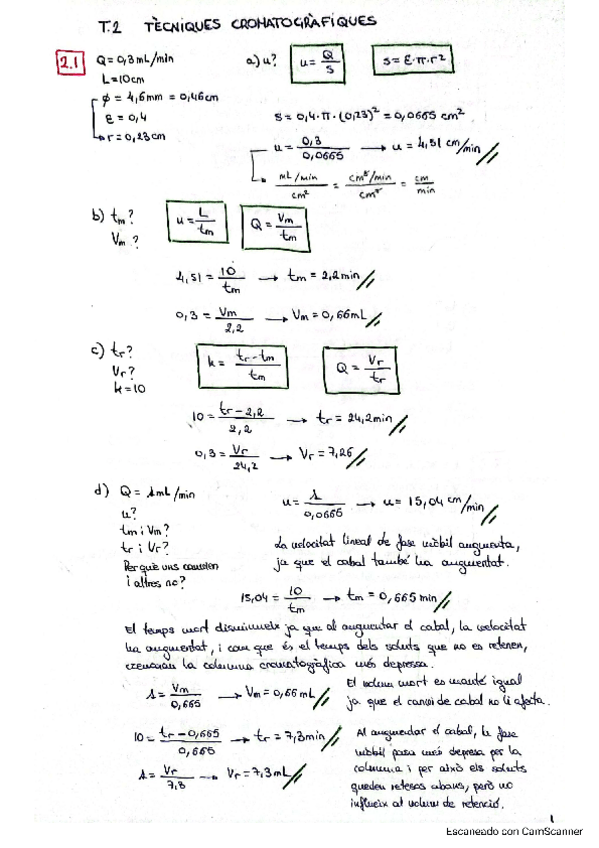 T.2 TÈCNIQUES CROMATOGRÀFIQUES
2.1 Q = 0,3 mL/min a) u? u = Q/S S = ε·π·r²
L = 10cm
ϕ = 4,6mm = 0,46cm
ε = 0,4 S = 0,4·π·(0,23)² = 0,0665 cm²
r = 0,23cm
u = 0,3/0,0665 → u = 4,51 cm/min
mL/min / cm² = cm³/min / cm² = cm/min
b) tm? u = L/tm Q = Vm/tm
Vm?
4,51 = 10/tm → tm = 2,2min
0,3 = Vm/2,2 → Vm = 0,66mL
c) tr? k = tr-tm/tm Q = Vr/tr
Vr?
k=10
10 = tr-2,2/2,2 → tr = 24,2min
0,3 = Vr/24,2 → Vr = 7,26
d) Q = 1mL/min u = 1/0,0665 → u = 15,04 cm/min
u?
tm i Vm? La velocitat lineal de fase mòbil augmenta,
tr i Vr? ja que el cabal també ha augmentat.
Per què uns canvien
i altres no?
15,04 = 10/tm → tm = 0,665 min
El temps mort disminueix ja que al augmentar el cabal, la velocitat
ha augmentat, i com que és el temps dels soluts que no es retenen,
la columna cromatogràfica més depressa.
1 = Vm/0,665 → Vm = 0,66 mL El volum mort es manté igual
ja que el canvi de cabal no li afecta.
10 = tr-0,665/0,665 → tr = 7,3min Al augmentar el cabal, la fase
mòbil passa més depresa per la
1 = Vr/7,3 → Vr = 7,3mL columna i per això els soluts
queden retesos abans, però no
influeix al volum de retenció.
1
Escaneado con CamScanner